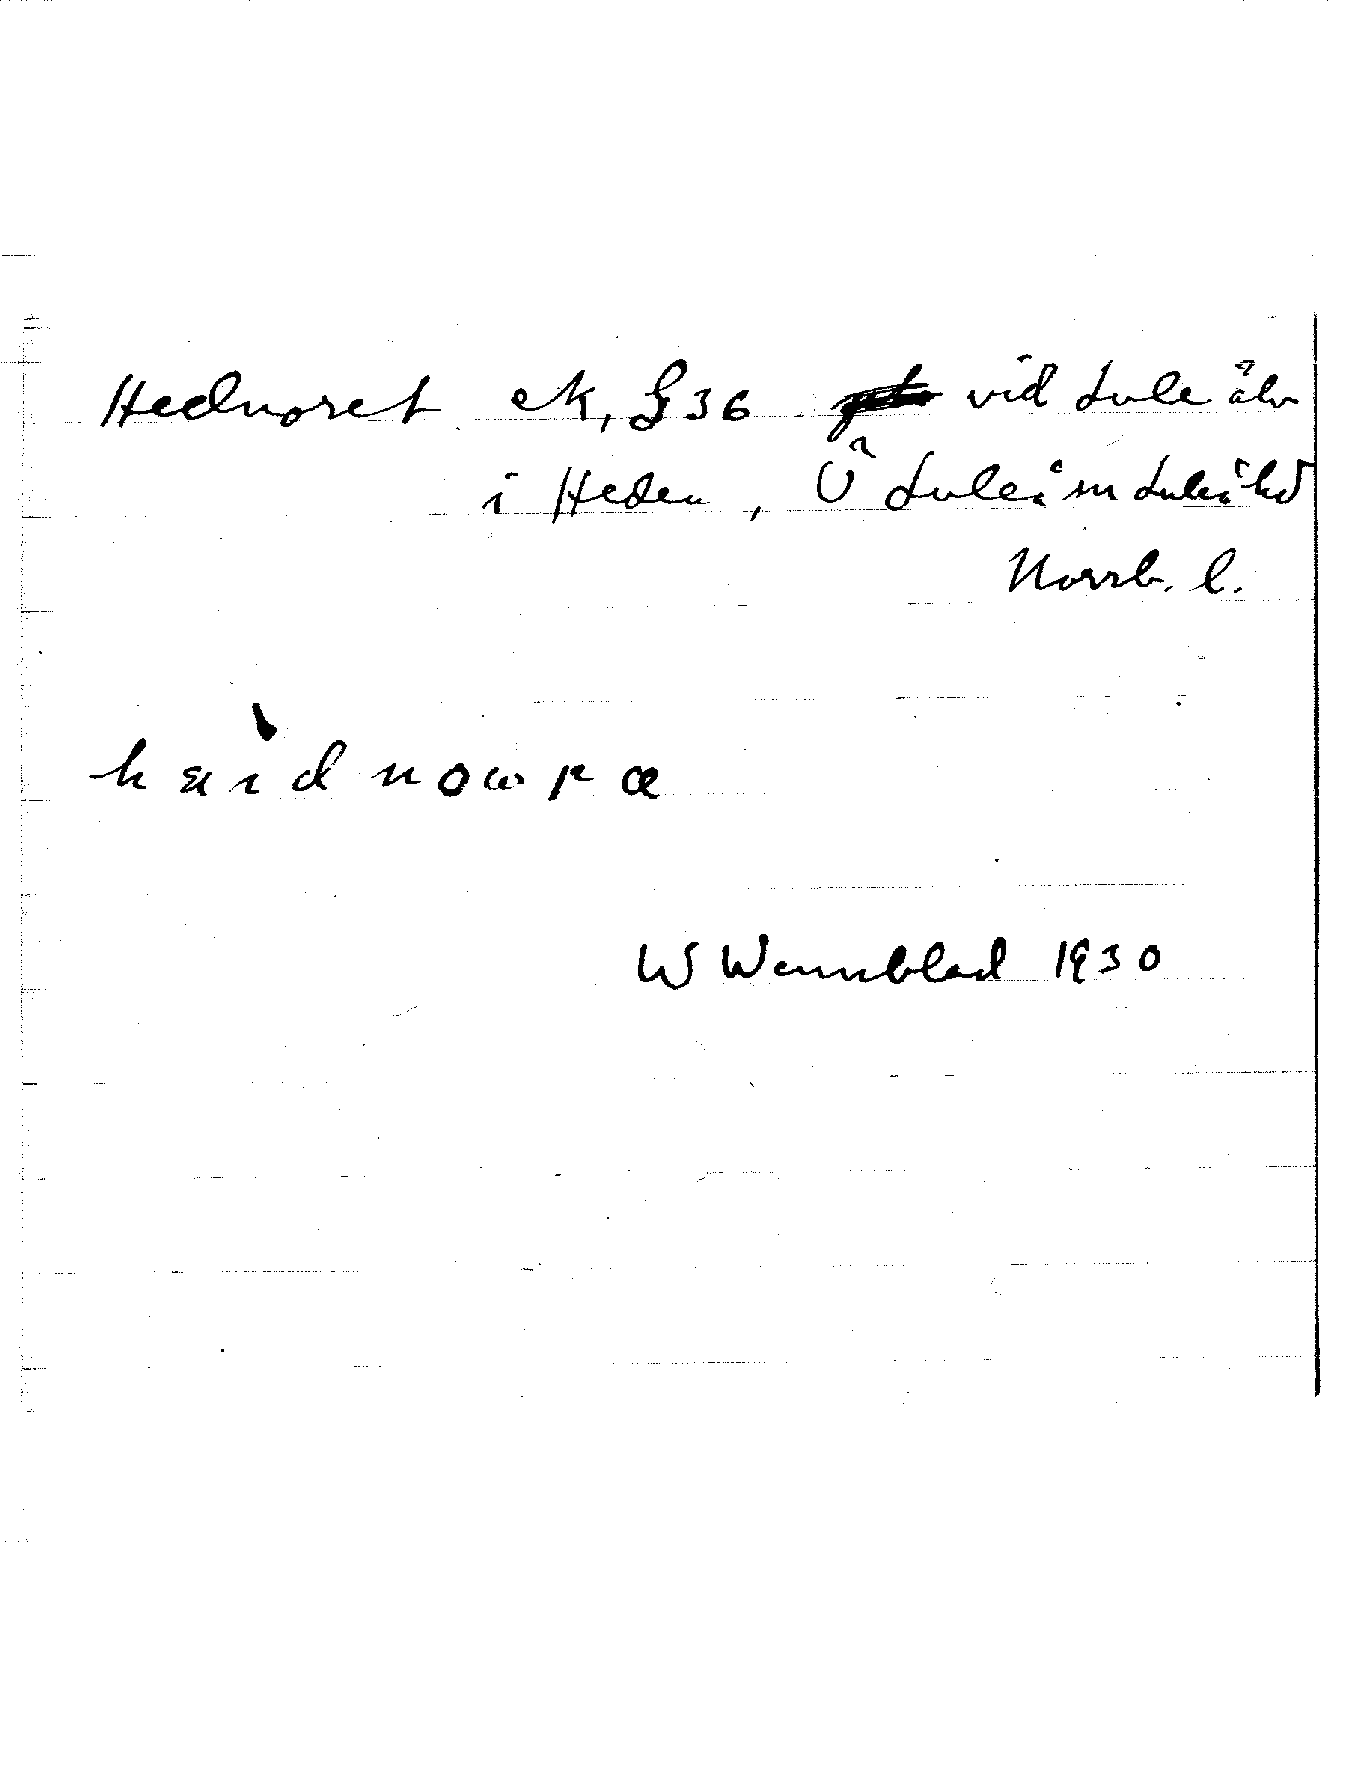 Hednoret ek, G 36 vid Lule älv
i Heden, Ö Luleå sn Luleå hd
Norrb. l.
hæidnowræ
W Wennblad 1930